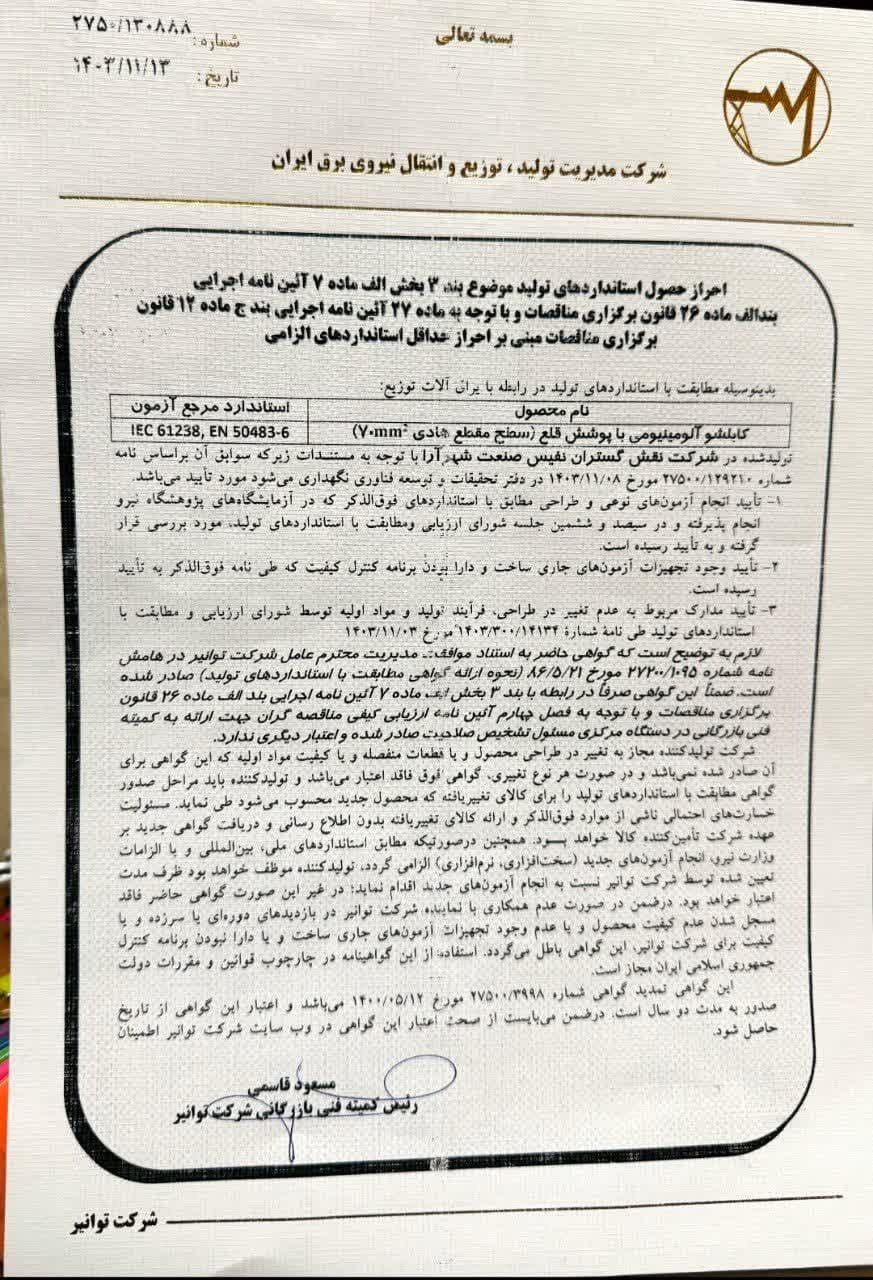 بسمه تعالی
شماره: ۲۷۵۰/۱۳۰۸۸۸
تاریخ: ۱۴۰۳/۱۱/۱۳
شرکت مدیریت تولید، توزیع و انتقال نیروی برق ایران
احراز حصول استانداردهای تولید موضوع بند ۳ بخش الف ماده ۷ آئین نامه اجرایی
بندالف ماده ۲۶ قانون برگزاری مناقصات و با توجه به ماده ۲۷ آئین نامه اجرایی بند ج ماده ۱۲ قانون
برگزاری مناقصات مبنی بر احراز حداقل استانداردهای الزامی
بدینوسیله مطابقت با استانداردهای تولید در رابطه با یراق آلات توزیع:
نام محصول استاندارد مرجع آزمون
کابلشو آلومینیومی با پوشش قلع (سطح مقطع هادی ۷۰mm²) IEC 61238, EN 50483-6
تولیدشده در شرکت نقش گستران نفیس صنعت شهرآرا با توجه به مستندات زیرکه سوابق آن براساس نامه
شماره ۲۷۵۰۰/۱۲۹۲۱۰ مورخ ۱۴۰۳/۱۱/۰۸ در دفتر تحقیقات و توسعه فناوری نگهداری می‌شود مورد تأیید می‌باشد.
۱- تأیید انجام آزمون‌های نوعی و طراحی مطابق با استانداردهای فوق‌الذکر که در آزمایشگاه‌های پژوهشگاه نیرو
انجام پذیرفته و در سیصد و ششمین جلسه شورای ارزیابی ومطابقت با استانداردهای تولید، مورد بررسی قرار
گرفته و به تأیید رسیده است.
۲- تأیید وجود تجهیزات آزمون‌های جاری ساخت و دارا بودن برنامه کنترل کیفیت که طی نامه فوق‌الذکر به تأیید
رسیده است.
۳- تأیید مدارک مربوط به عدم تغییر در طراحی، فرآیند تولید و مواد اولیه توسط شورای ارزیابی و مطابقت با
استانداردهای تولید طی نامهٔ شمارهٔ ۱۴۰۳/۳۰۰/۱۴۱۳۴ مورخ ۱۴۰۳/۱۱/۰۳
لازم به توضیح است که گواهی حاضر به استناد موافقت مدیریت محترم عامل شرکت توانیر در هامش
نامه شماره ۲۷۲۰۰/۱۰۹۵ مورخ ۸۶/۵/۲۱ (نحوه ارائه گواهی مطابقت با استانداردهای تولید) صادر شده
است. ضمناً این گواهی صرفاً در رابطه با بند ۳ بخش الف ماده ۷ آئین نامه اجرایی بند الف ماده ۲۶ قانون
برگزاری مناقصات و با توجه به فصل چهارم آئین نامه ارزیابی کیفی مناقصه گران جهت ارائه به کمیته
فنی بازرگانی در دستگاه مرکزی مسئول تشخیص صلاحیت صادر شده و اعتبار دیگری ندارد.
شرکت تولیدکننده مجاز به تغییر در طراحی محصول و یا قطعات منفصله و یا کیفیت مواد اولیه که این گواهی برای
آن صادر شده نمی‌باشد و در صورت هر نوع تغییری، گواهی فوق فاقد اعتبار می‌باشد و تولیدکننده باید مراحل صدور
گواهی مطابقت با استانداردهای تولید را برای کالای تغییریافته که محصول جدید محسوب می‌شود طی نماید. مسئولیت
خسارت‌های احتمالی ناشی از موارد فوق‌الذکر و ارائه کالای تغییریافته بدون اطلاع رسانی و دریافت گواهی جدید بر
عهده شرکت تأمین‌کننده کالا خواهد بود. همچنین درصورتیکه مطابق استانداردهای ملی، بین‌المللی و یا الزامات
وزارت نیرو، انجام آزمون‌های جدید (سخت‌افزاری، نرم‌افزاری) الزامی گردد، تولیدکننده موظف خواهد بود ظرف مدت
تعیین شده توسط شرکت توانیر نسبت به انجام آزمون‌های جدید اقدام نماید؛ در غیر این صورت گواهی حاضر فاقد
اعتبار خواهد بود. درضمن در صورت عدم همکاری با نماینده شرکت توانیر در بازدیدهای دوره‌ای یا سرزده و یا
مسجل شدن عدم کیفیت محصول و یا عدم وجود تجهیزات آزمون‌های جاری ساخت و یا دارا نبودن برنامه کنترل
کیفیت برای شرکت توانیر، این گواهی باطل می‌گردد. استفاده از این گواهینامه در چارچوب قوانین و مقررات دولت
جمهوری اسلامی ایران مجاز است.
این گواهی تمدید گواهی شماره ۲۷۵۰۰/۳۹۹۸ مورخ ۱۴۰۰/۰۵/۱۲ می‌باشد و اعتبار این گواهی از تاریخ
صدور به مدت دو سال است. درضمن می‌بایست از صحت اعتبار این گواهی در وب سایت شرکت توانیر اطمینان
حاصل شود.
مسعود قاسمی
رئیس کمیته فنی بازرگانی شرکت توانیر
شرکت توانیر